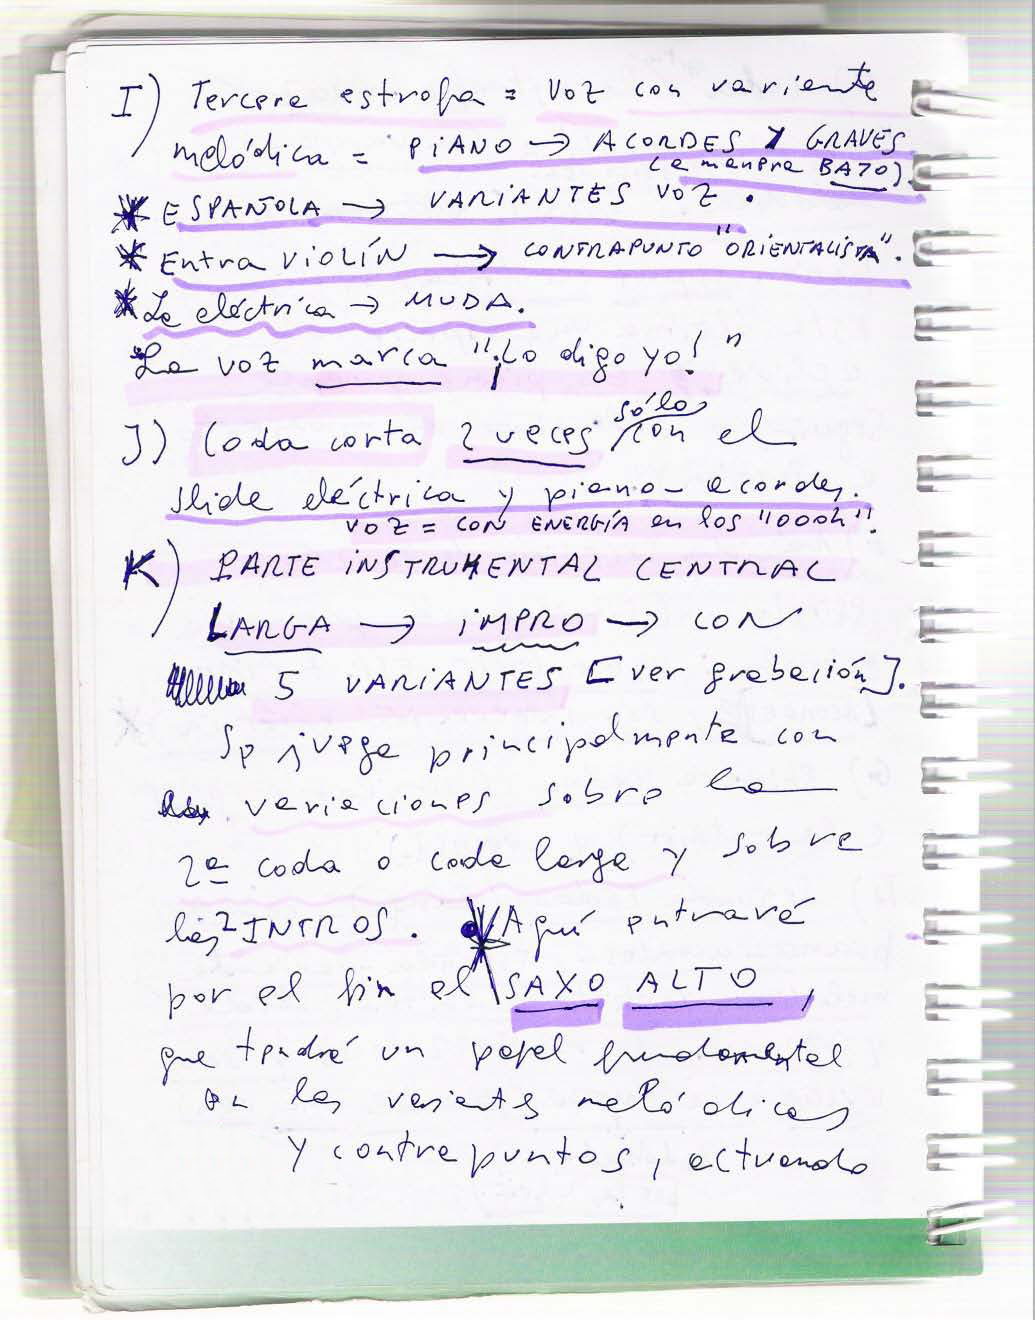 I) Tercera estrofa = voz con variente
melódica = PIANO → ACORDES Y GRAVES
(a manera BAJO).
* ESPAÑOLA → VARIANTES VOZ.
* Entra VIOLÍN → CONTRAPUNTO "ORIENTALISTA".
* La eléctrica → MUDA.
La voz marca "¡Lo digo yo!"
J) Coda corta 2 veces sólo
con el
slide eléctrica y piano-acordes.
VOZ = CON ENERGÍA en los "oooh".
K) PARTE INSTRUMENTAL CENTRAL
LARGA → IMPRO → CON
5 VARIANTES [ver grabación].
Se juega principalmente con
variaciones sobre la
2ª coda o coda larga y sobre
las 2 INTROS. * Aquí entrará
por el fin el SAXO ALTO,
que tendrá un papel fundamental
en las variantes melódicas
y contrapuntos, actuando